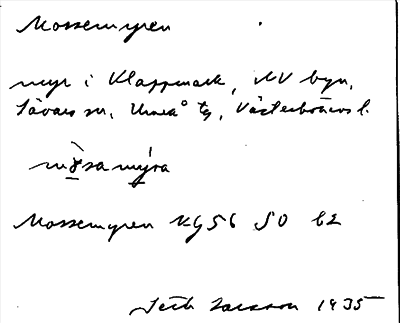 Mossemyren
myr i Klappmark, NV byn,
Sävars sn, Umeå tg, Västerbottens l.
mɷsamýra
Mossemyren KG56 SO b2
Seth Larsson 1935